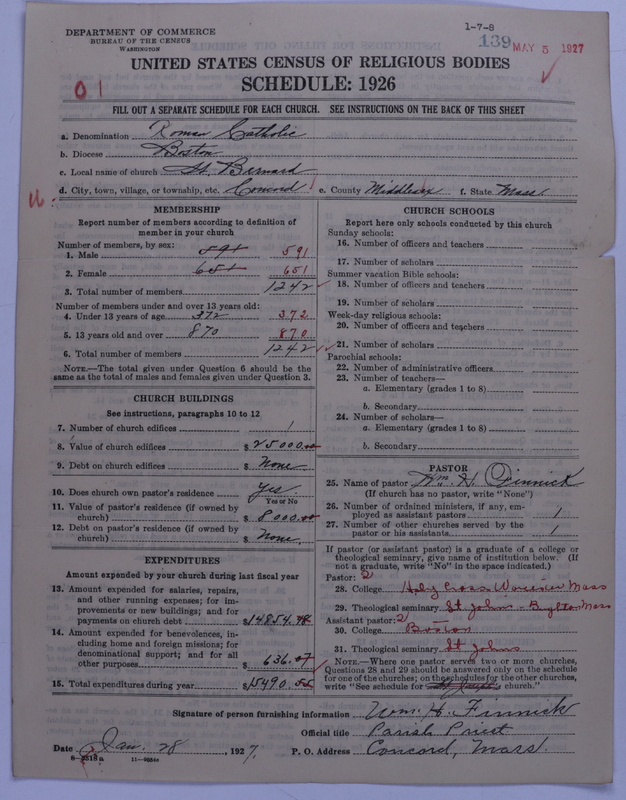 DEPARTMENT OF COMMERCE
BUREAU OF THE CENSUS
WASHINGTON
1-7-8
139 MAY 5 1927
UNITED STATES CENSUS OF RELIGIOUS BODIES
SCHEDULE: 1926
01
FILL OUT A SEPARATE SCHEDULE FOR EACH CHURCH. SEE INSTRUCTIONS ON THE BACK OF THIS SHEET
a. Denomination Roman Catholic
b. Diocese Boston
c. Local name of church St. Bernard
d. City, town, village, or township, etc. Concord e. County Middlesex f. State Mass.
MEMBERSHIP
Report number of members according to definition of
member in your church
Number of members, by sex:
1. Male 591
2. Female 651
3. Total number of members 1242
Number of members under and over 13 years old:
4. Under 13 years of age 372 372
5. 13 years old and over 870 870
6. Total number of members 1242
NOTE.—The total given under Question 6 should be the
same as the total of males and females given under Question 3.
CHURCH BUILDINGS
See instructions, paragraphs 10 to 12
7. Number of church edifices 1
8. Value of church edifices $ 25000.00
9. Debt on church edifices $ None
10. Does church own pastor's residence Yes.
Yes or No
11. Value of pastor's residence (if owned by
church) $ 8000.00
12. Debt on pastor's residence (if owned by
church) $ None
EXPENDITURES
Amount expended by your church during last fiscal year
13. Amount expended for salaries, repairs,
and other running expenses; for im-
provements or new buildings; and for
payments on church debt $ 14854.48
14. Amount expended for benevolences, in-
cluding home and foreign missions; for
denominational support; and for all
other purposes $ 636.07
15. Total expenditures during year $ 15490.55
CHURCH SCHOOLS
Report here only schools conducted by this church
Sunday schools:
16. Number of officers and teachers
17. Number of scholars
Summer vacation Bible schools:
18. Number of officers and teachers
19. Number of scholars
Week-day religious schools:
20. Number of officers and teachers
21. Number of scholars
Parochial schools:
22. Number of administrative officers
23. Number of teachers—
a. Elementary (grades 1 to 8)
b. Secondary
24. Number of scholars—
a. Elementary (grades 1 to 8)
b. Secondary
PASTOR
25. Name of pastor Wm. H. Finnick
(If church has no pastor, write "None")
26. Number of ordained ministers, if any, em-
ployed as assistant pastors 1
27. Number of other churches served by the
pastor or his assistants 1
If pastor (or assistant pastor) is a graduate of a college or
theological seminary, give name of institution below. (If
not a graduate, write "No" in the space indicated.)
Pastor: 2
28. College Holy Cross Worcester Mass
29. Theological seminary St John. Brighton Mass
Assistant pastor: 2
30. College Boston
31. Theological seminary St Johns
NOTE.—Where one pastor serves two or more churches,
Questions 28 and 29 should be answered only on the schedule
for one of the churches; on the schedules for the other churches,
write "See schedule for church."
Signature of person furnishing information Wm. H. Finnick
Official title Parish Priest
Date Jan. 28, 1927. P. O. Address Concord, Mass.
8-5518a 11-9054